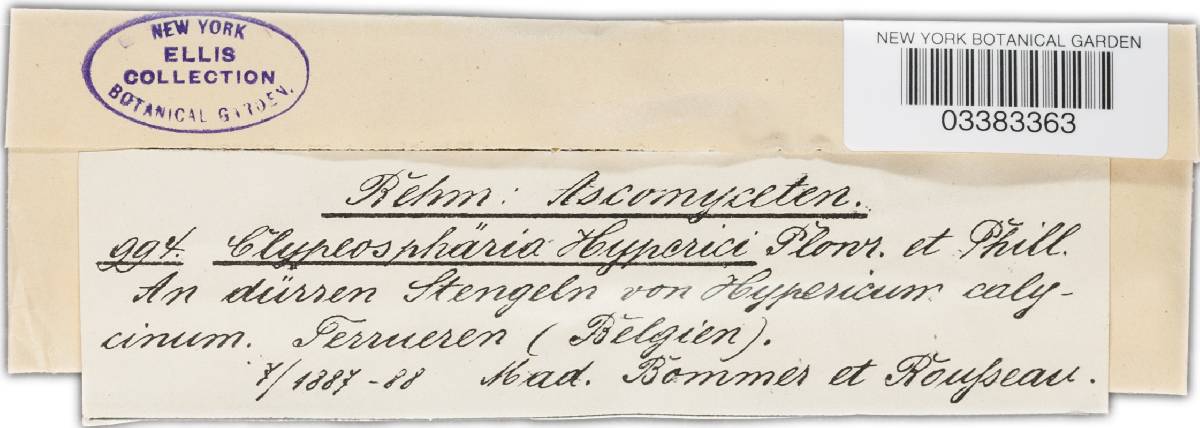 NEW YORK
ELLIS
COLLECTION
BOTANICAL GARDEN.
NEW YORK BOTANICAL GARDEN
03383363
Rehm: Ascomyceten.
994. Clypeosphäria Hyperici Plowr. et Phill.
An dürren Stengeln von Hypericum caly-
cinum. Terrueren (Belgien).
7/1887-88 Mad. Bommer et Rousseau.